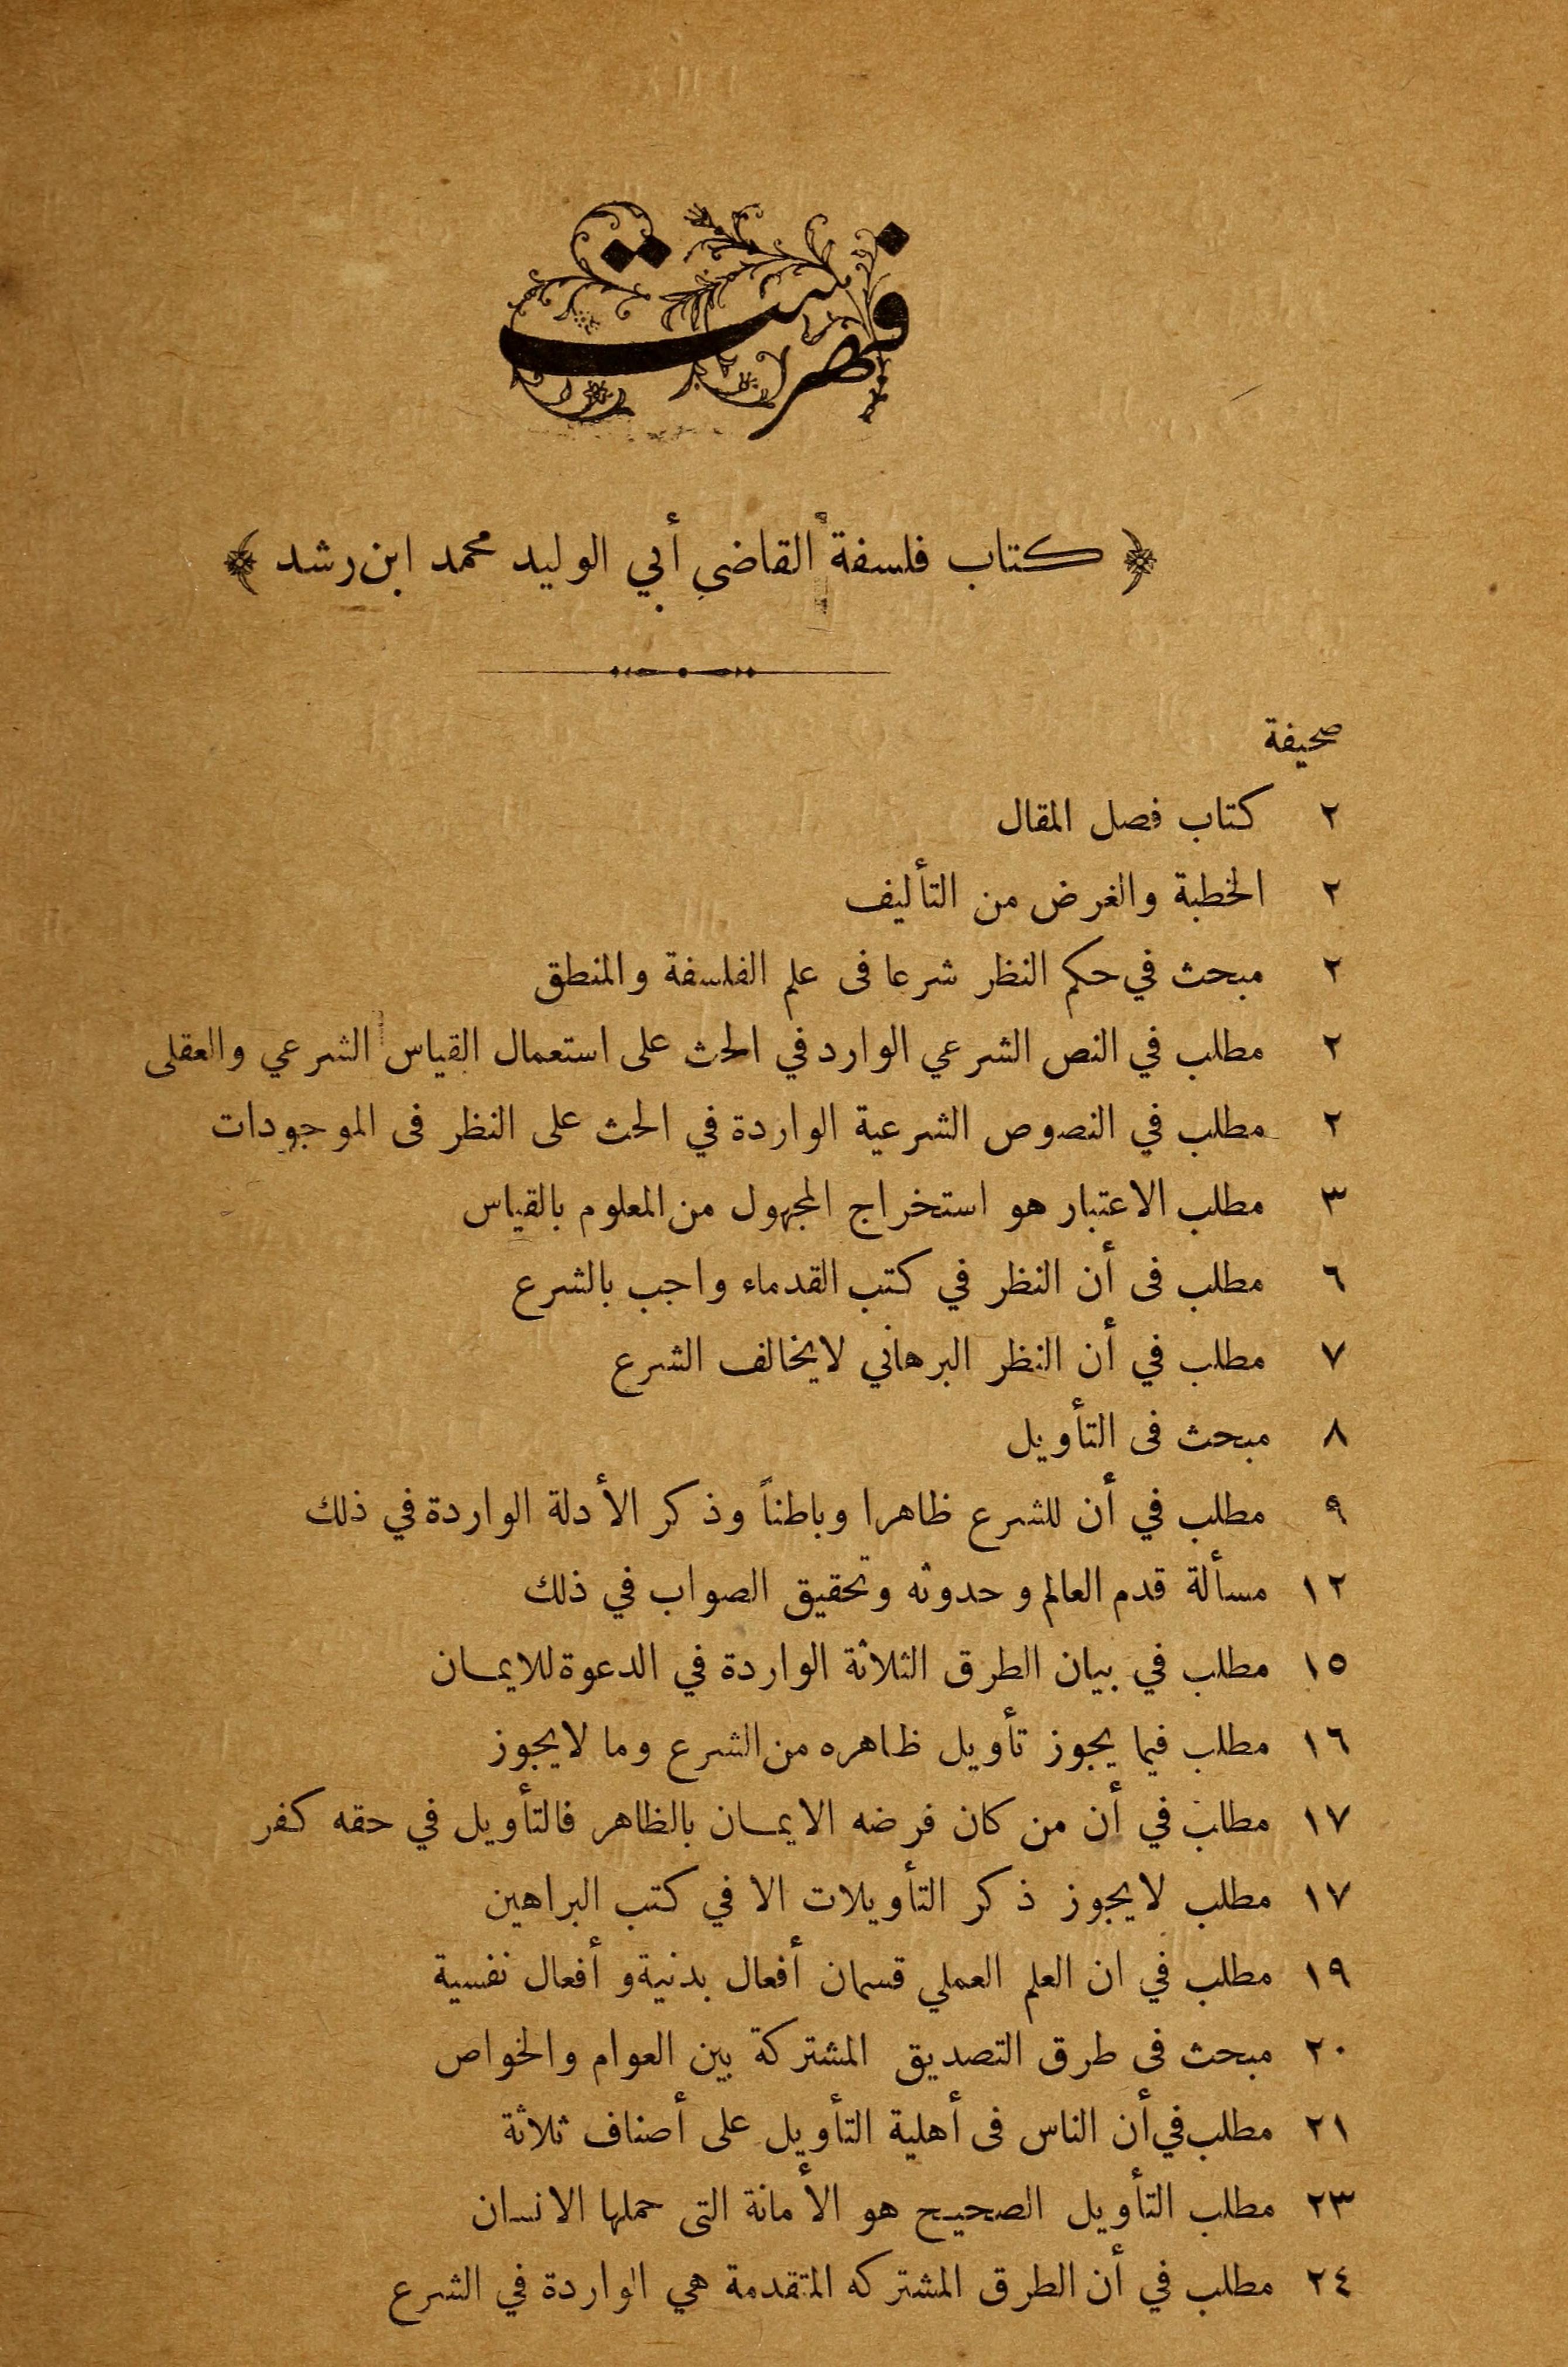 فهرست
﴿ كتاب فلسفة القاضي أبي الوليد محمد ابن رشد ﴾
صحيفة
٢ كتاب فصل المقال
٢ الخطبة والغرض من التأليف
٢ مبحث في حكم النظر شرعا فى علم الفلسفة والمنطق
٢ مطلب في النص الشرعي الوارد في الحث على استعمال القياس الشرعي والعقلى
٢ مطلب في النصوص الشرعية الواردة في الحث على النظر فى الموجودات
٣ مطلب الاعتبار هو استخراج المجهول من المعلوم بالقياس
٦ مطلب فى أن النظر في كتب القدماء واجب بالشرع
٧ مطلب في أن النظر البرهاني لايخالف الشرع
٨ مبحث فى التأويل
٩ مطلب في أن للشرع ظاهرا وباطناً وذكر الأدلة الواردة في ذلك
١٢ مسألة قدم العالم وحدوثه وتحقيق الصواب في ذلك
١٥ مطلب في بيان الطرق الثلاثة الواردة في الدعوة للايمان
١٦ مطلب فيما يجوز تأويل ظاهره من الشرع وما لايجوز
١٧ مطلب في أن من كان فرضه الايمان بالظاهر فالتأويل في حقه كفر
١٧ مطلب لايجوز ذكر التأويلات الا في كتب البراهين
١٩ مطلب في ان العلم العملي قسمان أفعال بدنية و أفعال نفسية
٢٠ مبحث فى طرق التصديق المشتركة بين العوام والخواص
٢١ مطلب في أن الناس فى أهلية التأويل على أصناف ثلاثة
٢٣ مطلب التأويل الصحيح هو الأمانة التى حملها الانسان
٢٤ مطلب في أن الطرق المشتركه المتقدمة هي الواردة في الشرع